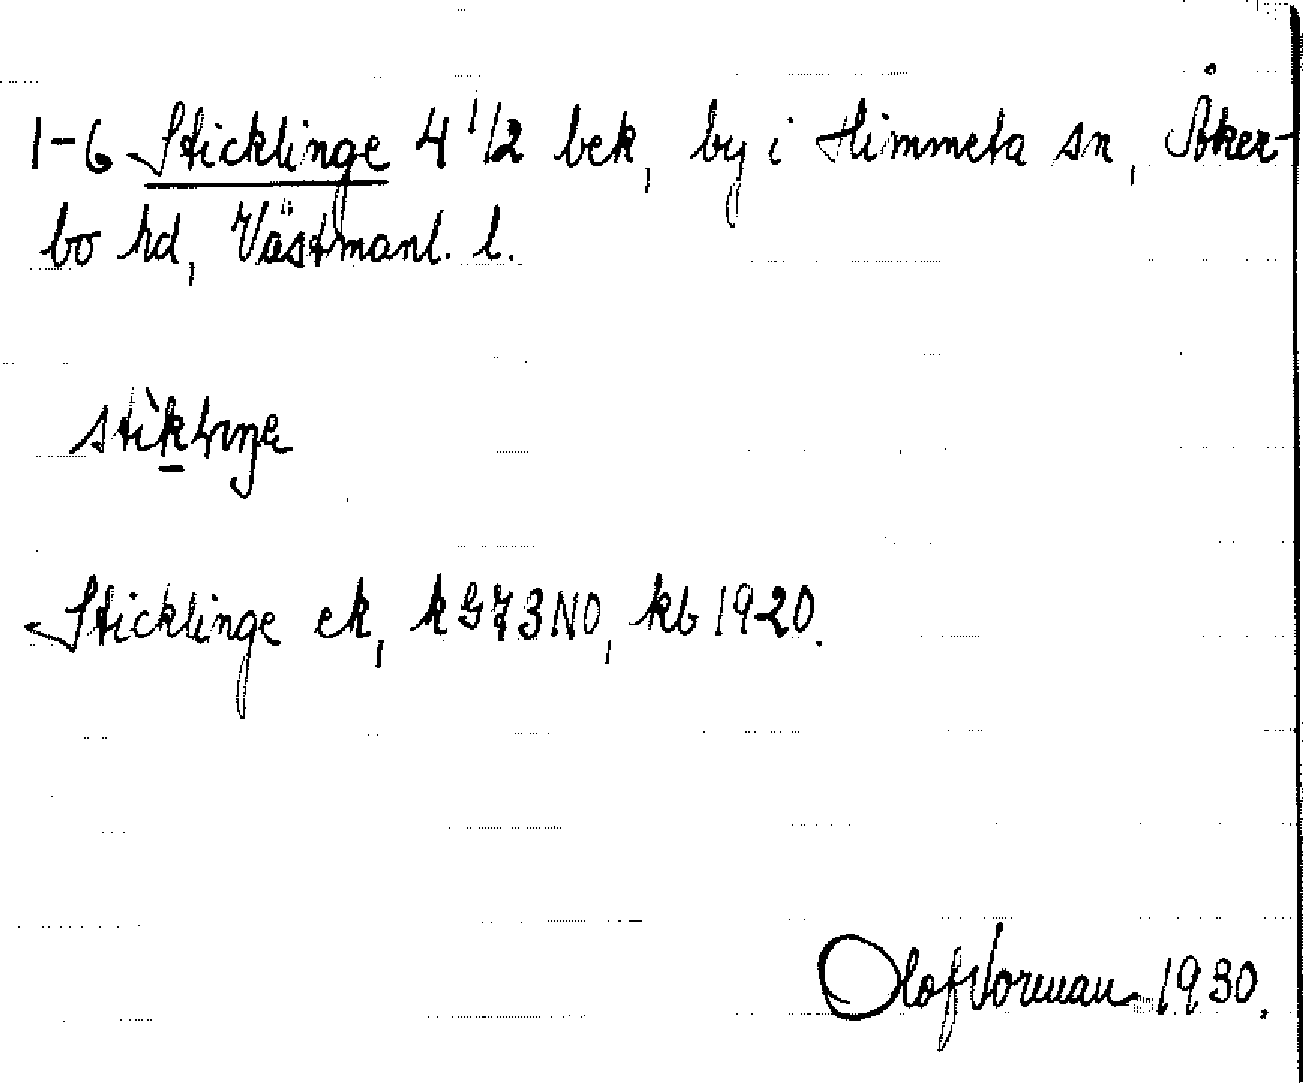 1-6 Sticklinge 4 1/2 bek, by i Himmeta sn, Åker-
bo hd, Västmanl. l.
stìklıŋə
Sticklinge ek, k G73NO, kb 1920.
Olof Vorman 1930.